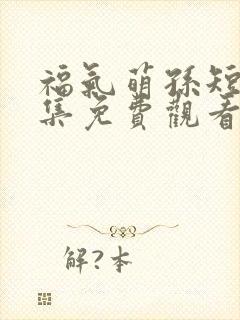 福氣萌孫短
集免費觀看
解?本